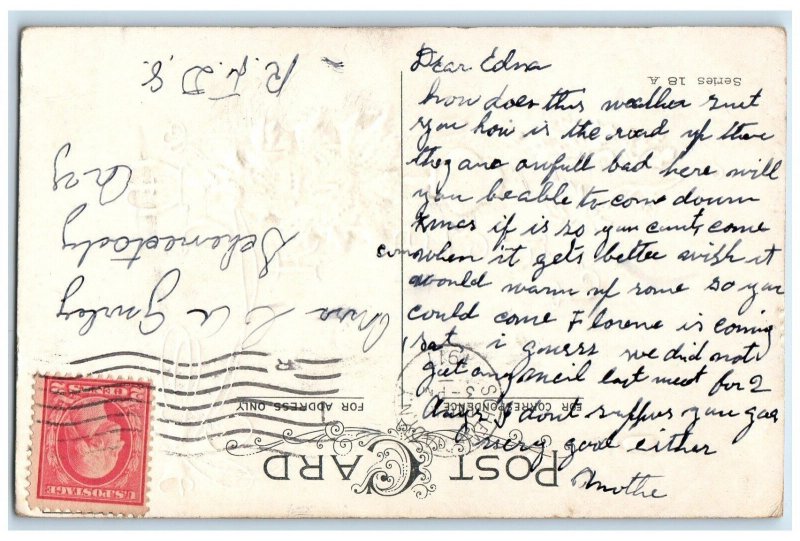 Dear Edna
how does this weather suit
you how is the road up there
they are awfull bad here will
you beable to come down
Xmas if is so you cant come
come when it gets better wish it
would warm up some so you
could come Florene is coming
sat i guess we did not
get any meil last meet for 2
days I dont suppes you gas
very good either
Mothe
Series 18 A
POST CARD
FOR CORRESPONDENCE
FOR ADDRESS ONLY
Mrs L A Gurley
Schenectady
N.Y.
R. F. D. 8.
U.S. POSTAGE
2 CENTS 2